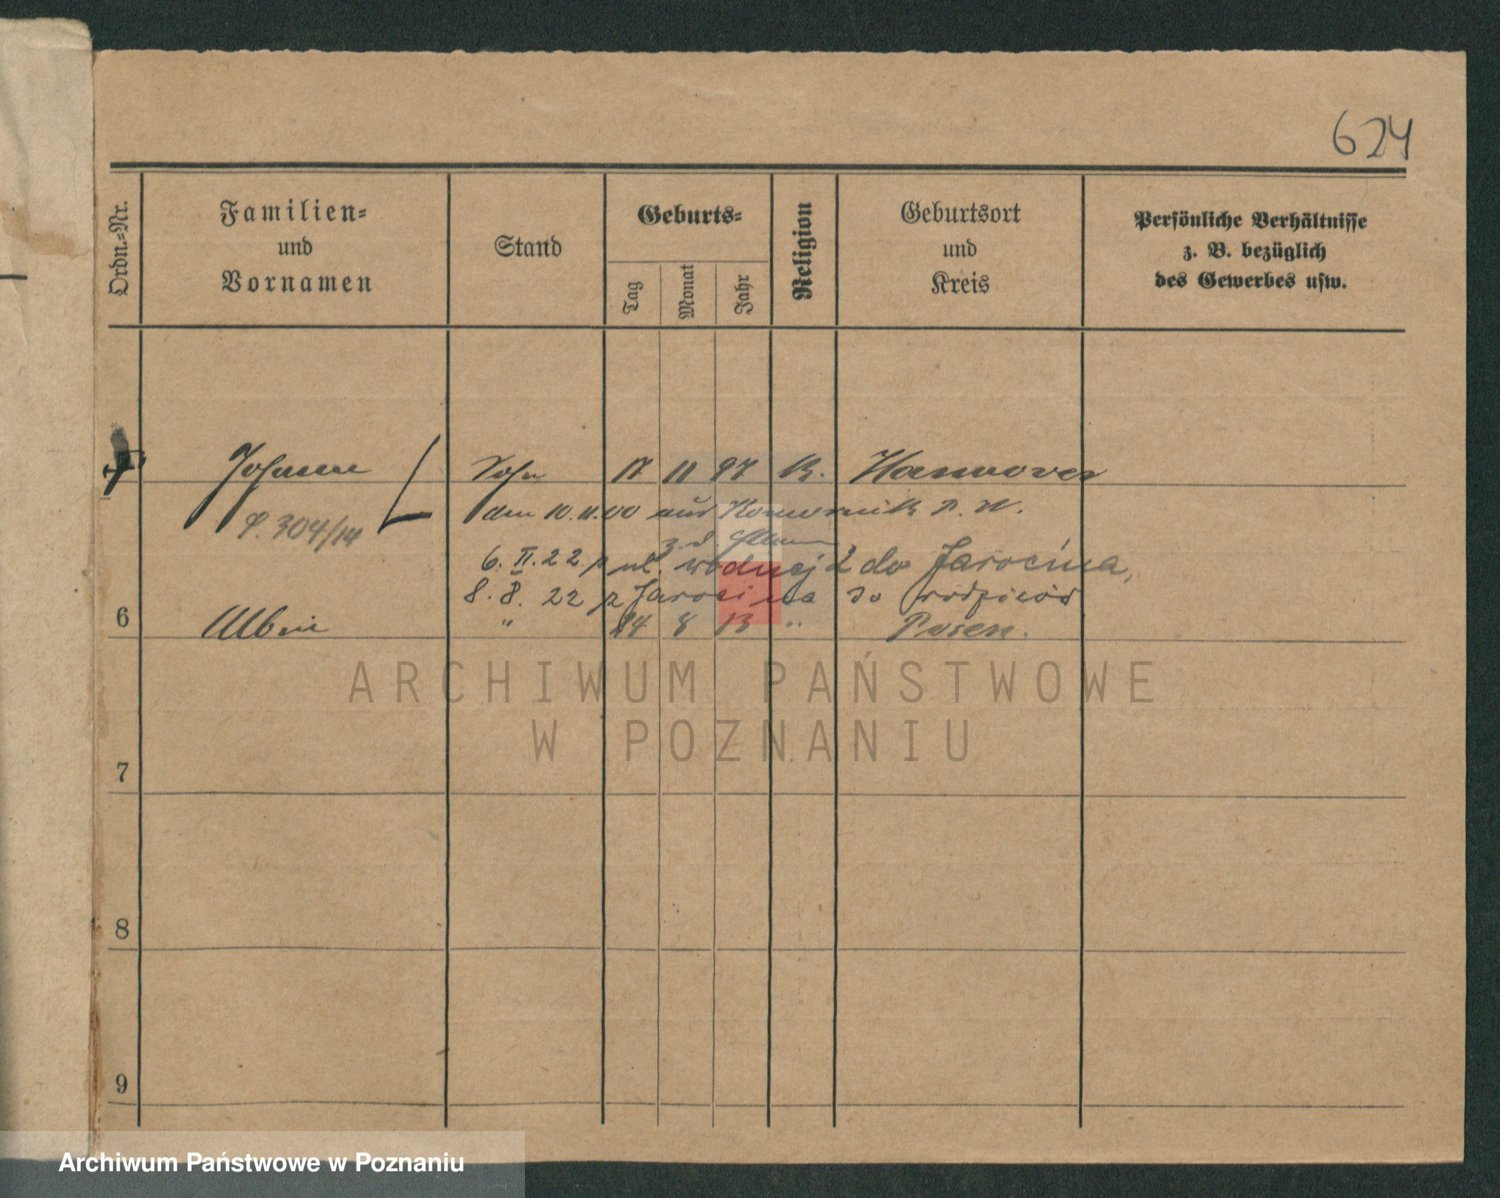 624
Ordn.=Nr.
Familien=
und
Vornamen
Stand
Geburts=
Tag
Monat
Jahr
Religion
Geburtsort
und
Kreis
Persönliche Verhältnisse
z. B. bezüglich
des Gewerbes usw.
Johann Sohn 17 11 97 K. Hannover
P. 304/14
den 10.11.00 aus Komornik P. W.
z. d.
6. II. 22 p ul. wodnej 2 do Jarocina,
8. 8. 22 z Jarocina do rodziców
6 Albin " 24 8 13 " Posen.
ARCHIWUM PAŃSTWOWE
W POZNANIU
7
8
9
Archiwum Państwowe w Poznaniu